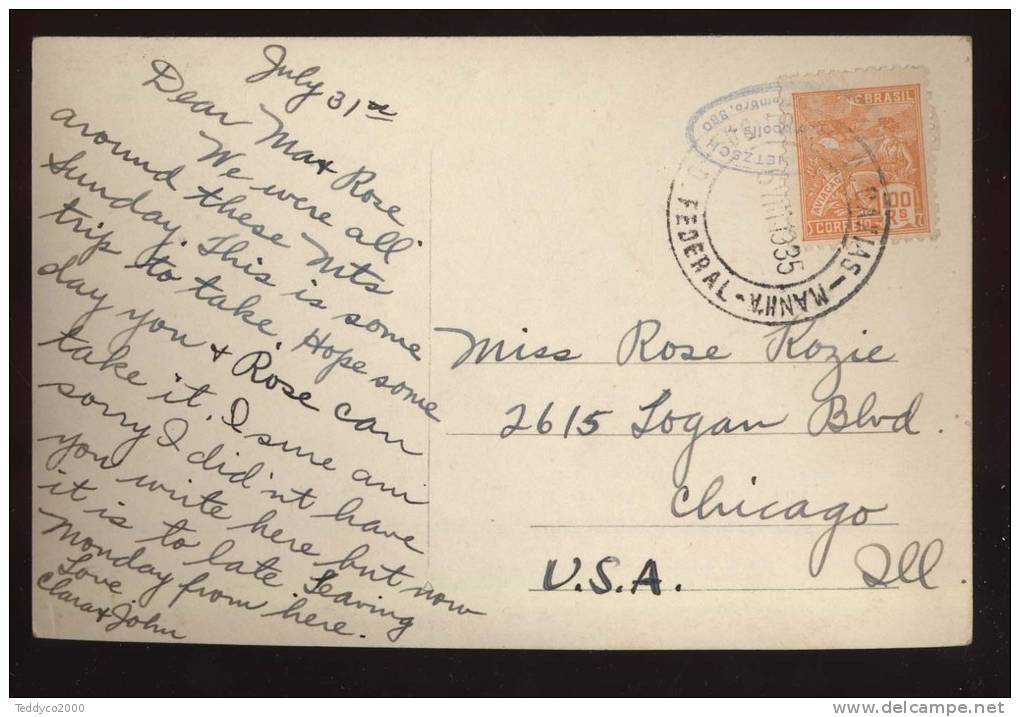 July 31st
Dear Max Rose
We were all
around these Mts
Sunday. This is some
trip to take. Hope some
day you + Rose can
take it. I sure am
sorry I did'nt have
you write here but now
it is to late. Leaving
Monday from here.
Love
Clara + John
BRASIL
AVIAÇÃO
100
RS
CORREIO
FEDERAL - MANHÃ
1935
Miss Rose Kozie
2615 Logan Blvd.
Chicago
U.S.A. Ill.
Teddyco2000
www.delcampe.net